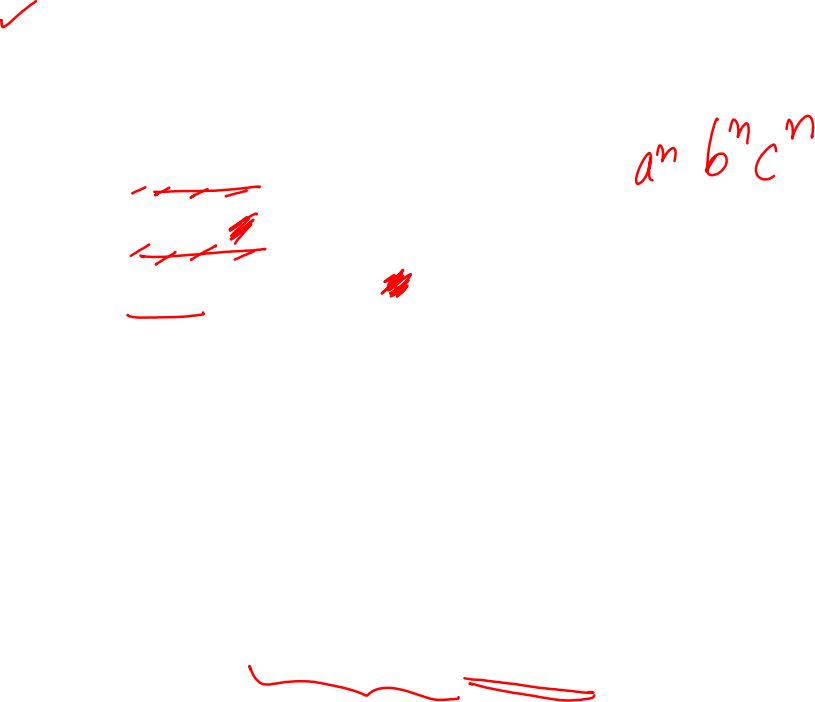 aⁿ bⁿ cⁿ